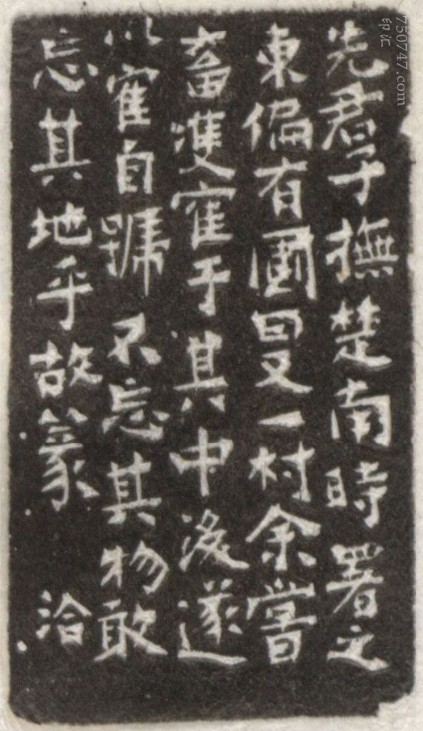 先君子撫楚南時署之
東偏有園曰又一村余嘗
畜雙寉于其中後遂
以寉自號不忘其物敢
忘其地乎故篆 洽
印汇
750747.com